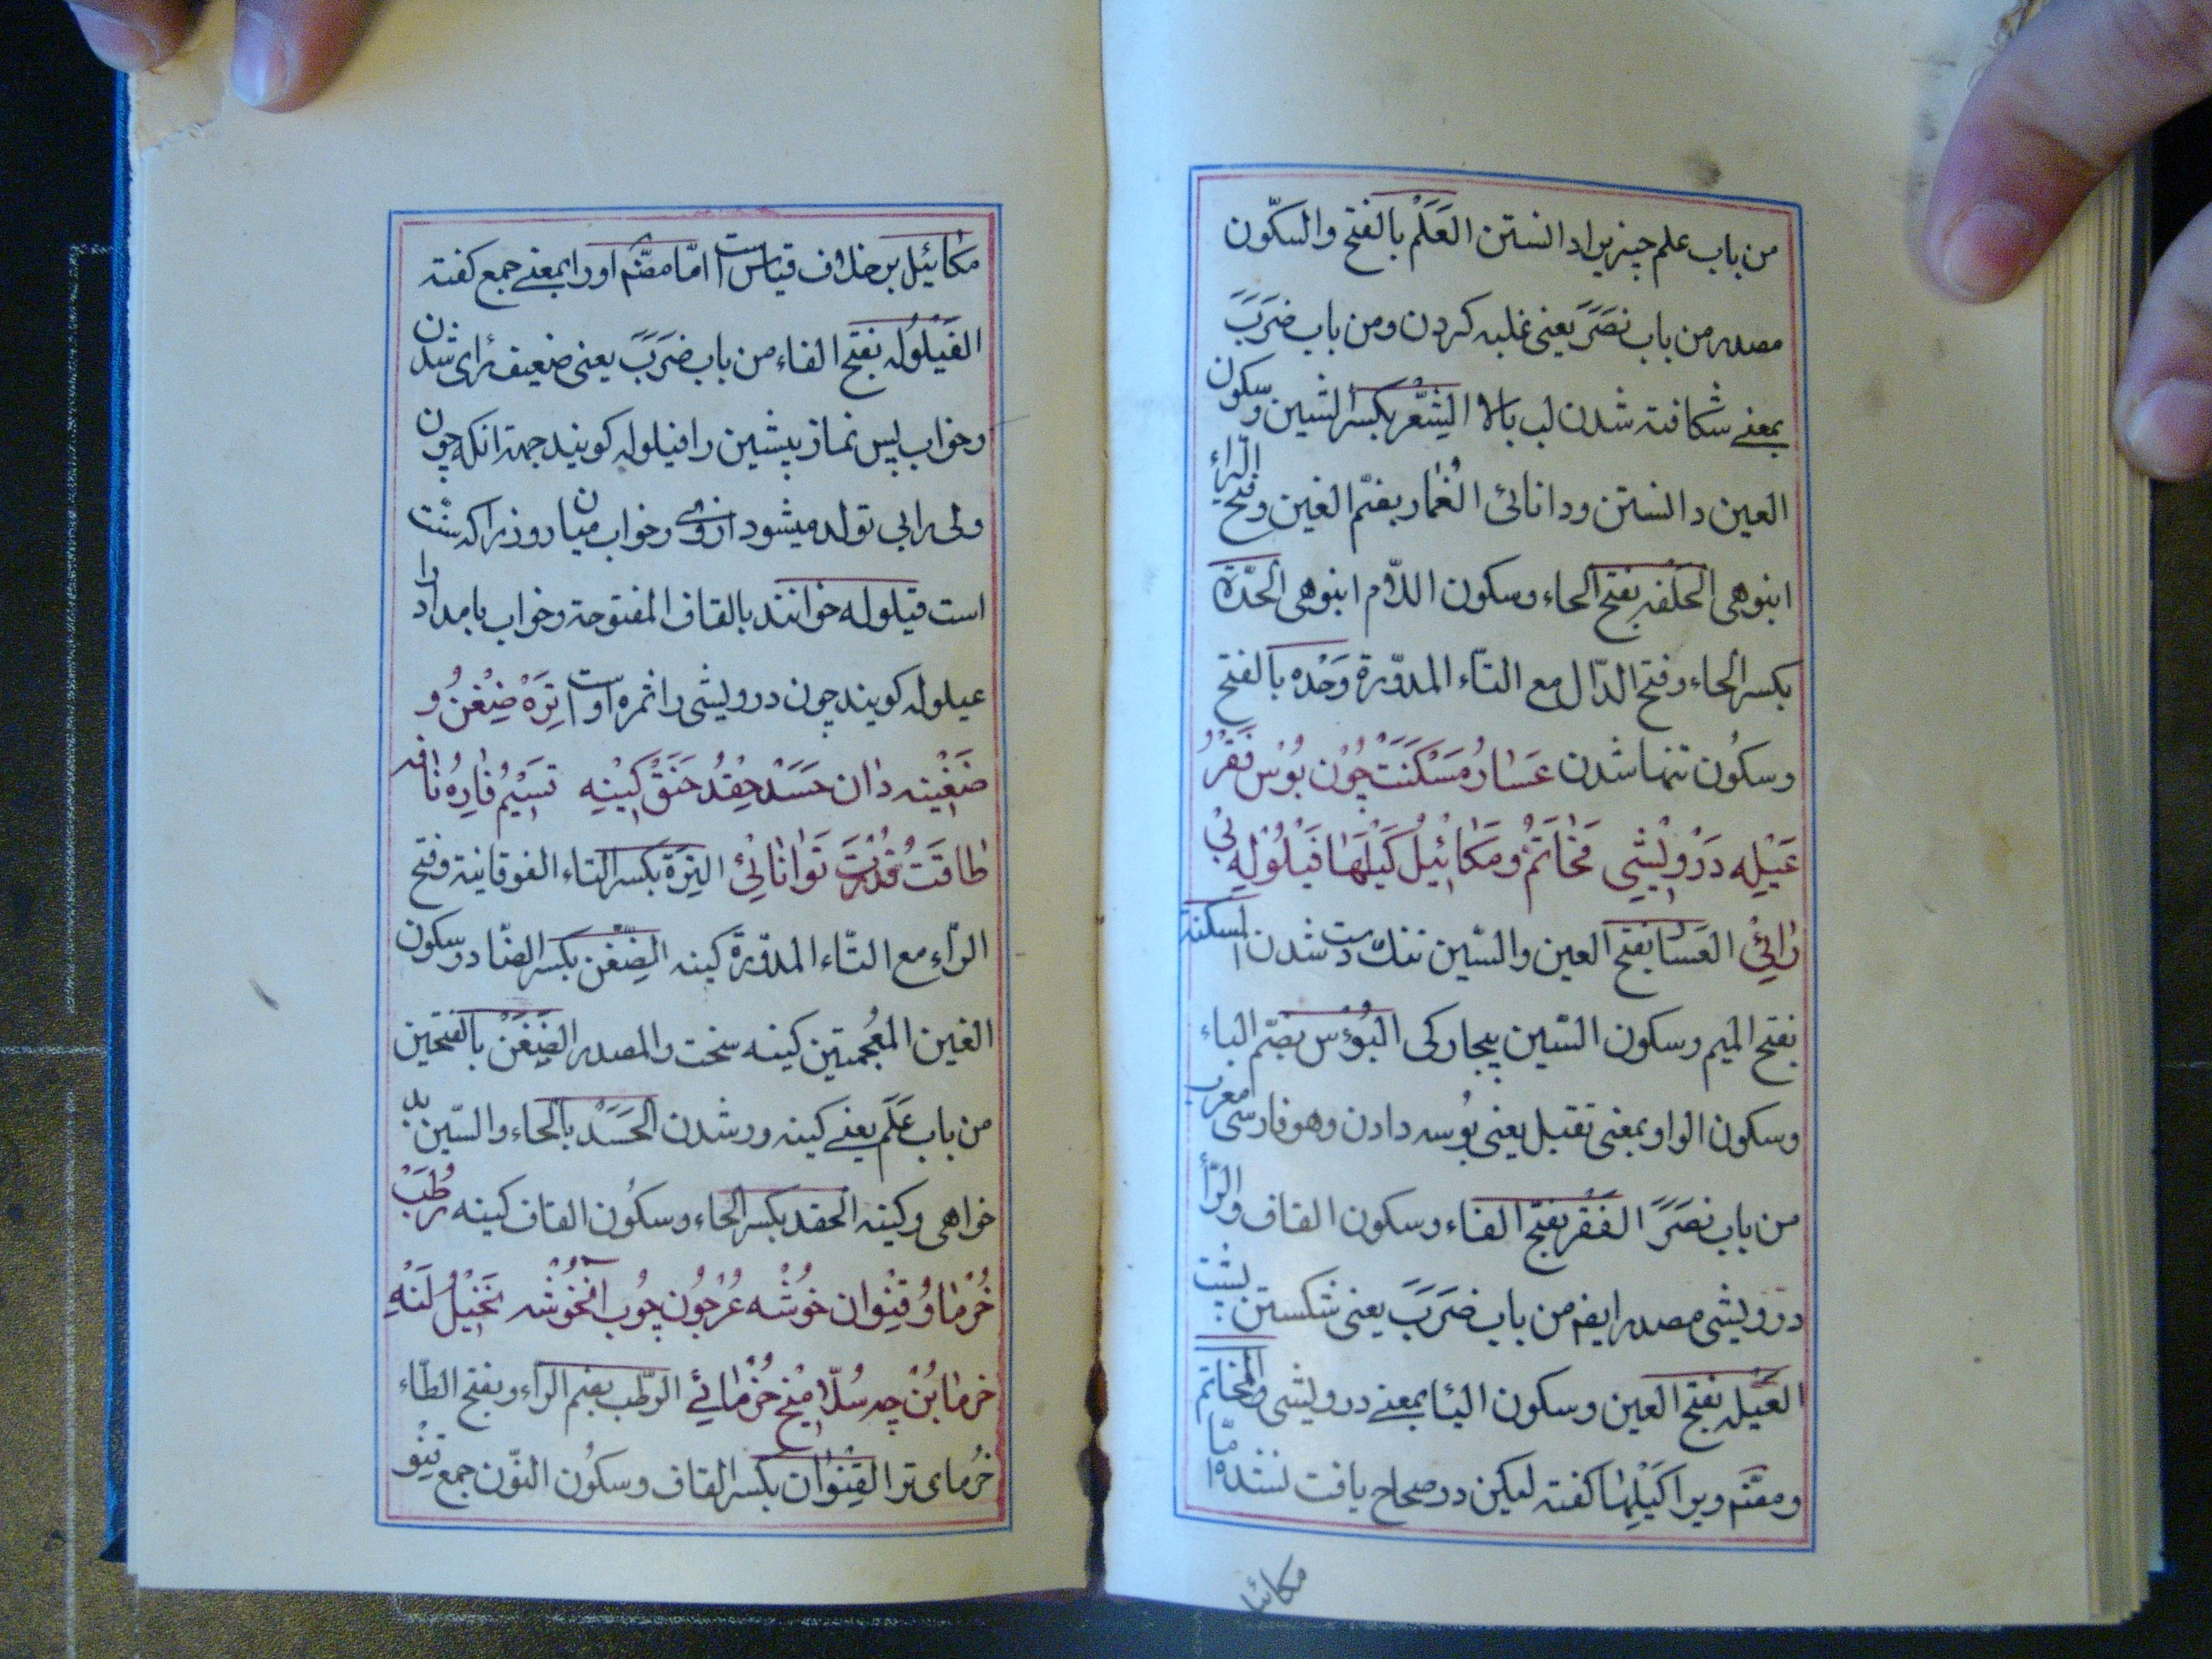 من باب علم چیزیرا دانستن العَلْم بالفتح والسّکون
مصدر من باب نصَرَ یعنی غلبه کردن ومن باب ضرَبَ
بمعنے شکافته شدن لب بالا الشِّعْر بکسر الشین وسکون
العین دانستن ودانائی الغُمار بضمّ الغین وفتح الراء
انبوهی الحلفه بفتح الحاء وسکون اللام انبوهی الحِدَة
بکسر الحاء وفتح الدّال مع التّاء المدوّرة وَحْدَه بالفتح
وسکُون تنها شدن عَسارُ مَسْکَنَتْ چُون بُوْس فَقْرُ
عَیْلِه دَرْوِیْشِی مَخاتَمُ ومَکائِیْلُ کَیْلَها فَیْلُوْلِه بی
رائِیْ العَسار بفتح العین والسّین تنک دست شدن المسکنة
بفتح المیم وسکون السّین بیچارکی البُوْس بضمّ الباء
وسکون الواو بمعنی تقبیل یعنی بُوسه دادن وهو فارسی معرب
من باب نصَرَ الفَقْر بفتح الفاء وسکون القاف والرّاء
درویشی مصدر ایضم من باب ضرَبَ یعنی شکستن پشت
العَیْله بفتح العین وسکون الیا بمعنے درویشی والمخاتم
ومصنّم ویرا کَیْلِها کفته لیکن در صحاح یافت نشده امّا
مکائیل
مکائیل بر خلاف قیاس است امّا مصنّم او را بمعنے جمع کفته
الفَیْلُولَه بفتح الفاء من باب ضرَبَ یعنی ضعیف رای شدن
وخواب پس نماز پیشین را فیلوله کویند جهة انکه چون
ولی رایی تولد میشود ازوی وخواب میان روز را که سنّت
است قیلوله خوانند بالقاف المفتوحة وخواب بامداد را
عیلوله کویند چون درویشی را ثمره اوست تِرَهْ ضِغْنُ و
ضَغِیْنه دان حَسَدْ حِقْدُ حَنَقْ کِیْنِه تسَیْمُ فارِهُ نافه
طاقَتْ قُدْرَتْ تَوانائِیْ التِرَة بکسر التاء الفوقانیة وفتح
الرّاء مع التّاء المدوّرة کینه الضِّغْن بکسر الضّاد وسکون
الغین المُعجمتین کینه سخت والمصدر الضَغَنْ بالفتحتین
من باب عَلَم یعنے کینه ور شدن الحَسَدْ بالحاء والسّین بد
خواهی وکینه الحقد بکسر الحاء وسکُون القاف کینه رُطَبْ
خُرْما وُقِنْوان خوُشْه عُرْجُون چُوب آنْخُوشه نخَیْلُ لَنه
خرما بُنْ چه سُلّا مِیْخ خُرمائے الرّطب بضم الراء وبفتح الطّاء
خُرمای تر القِنْوان بکسر القاف وسکُون النّون جمع قِنْو